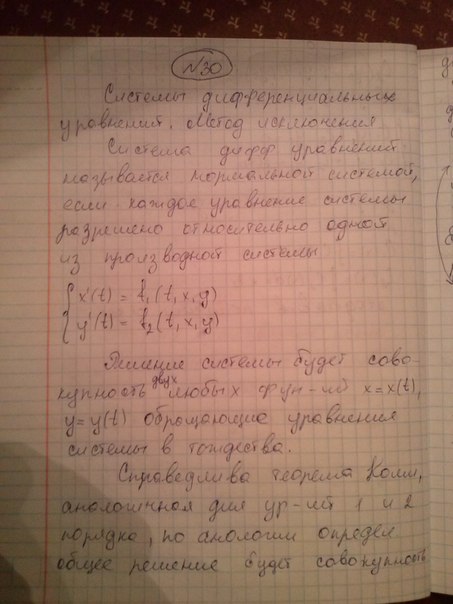 N30
Системы дифференциальных
уравнений. Метод исключения
Система дифф уравнений
называется нормальной системой,
если каждое уравнение системы
разрешено относительно одной
из производной системы
{ x'(t) = f₁(t, x, y)
y'(t) = f₂(t, x, y)
Решение системы будет сово-
купность двух любых фун-ий x = x(t),
y = y(t) обращающие уравнения
системы в тождества.
Справедлива теорема Коши,
аналогичная для ур-ий 1 и 2
порядка, по аналогии определ
общее решение будет совокупность